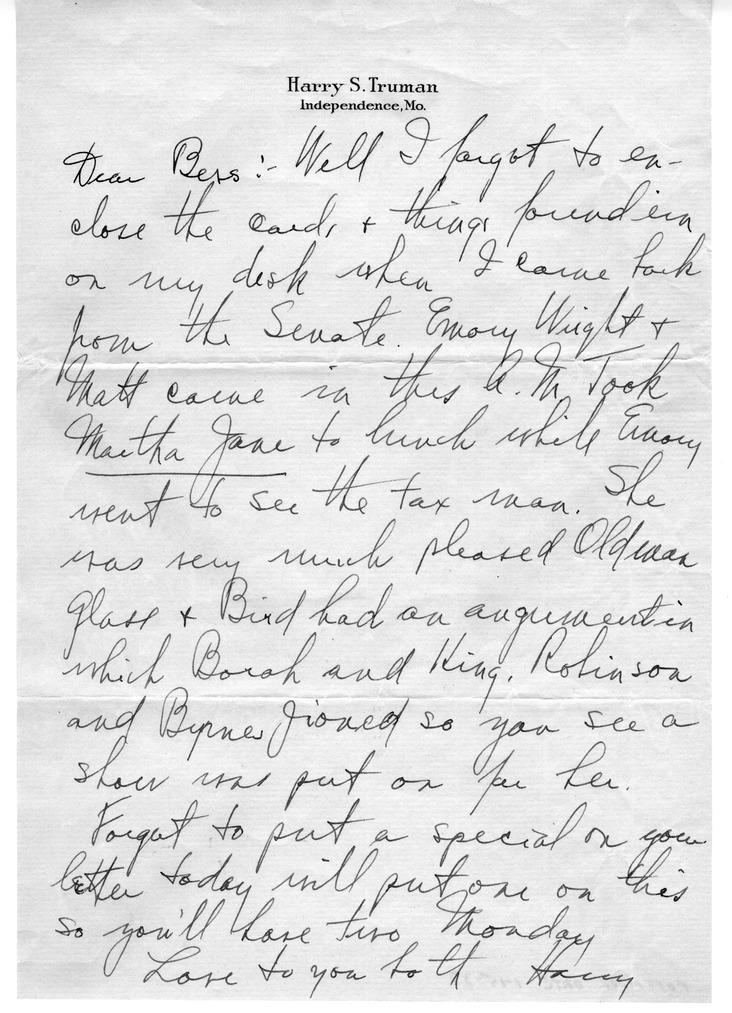 Harry S. Truman
Independence, Mo.
Dear Bess :- Well I forgot to en-
close the cards + things found ein
on my desk when I came back
from the Senate. Emory Wright +
Matt came in this A.M. Took
Martha Jane to lunch while Emory
went to see the tax man. She
was very much pleased Old man
Glass + Bird had an argument in
which Borah and King, Robinson
and Byrnes Jioned so you see a
show was put on for her.
Forgot to put a special on your
letter today will put one on this
so you'll have two Monday
Love to you both Harry